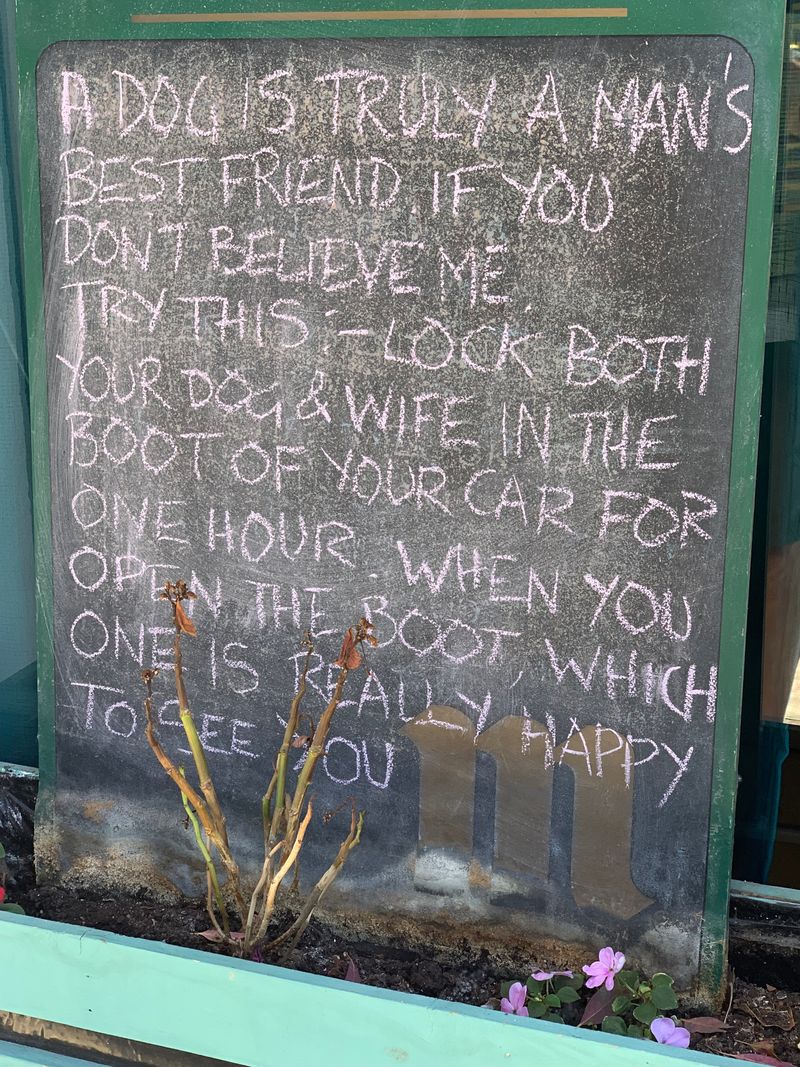 A DOG IS TRULY A MAN'S
BEST FRIEND, IF YOU
DON'T BELIEVE ME.
TRY THIS :- LOCK BOTH
YOUR DOG & WIFE IN THE
BOOT OF YOUR CAR FOR
ONE HOUR. WHEN YOU
OPEN THE BOOT, WHICH
ONE IS REALLY HAPPY
TO SEE YOU
m